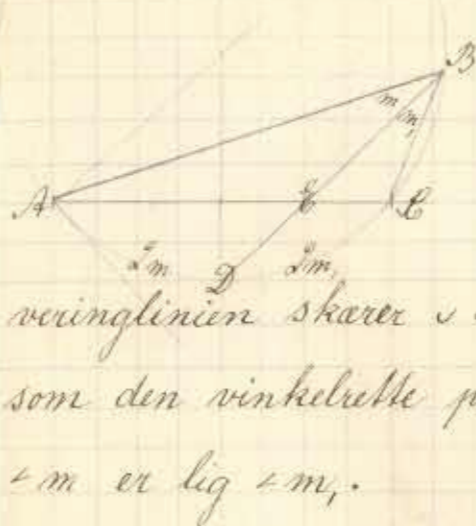 B
m m,
A E C
2m D 2m,
veringlinien skærer
som den vinkelrette
∠m er lig ∠m,.